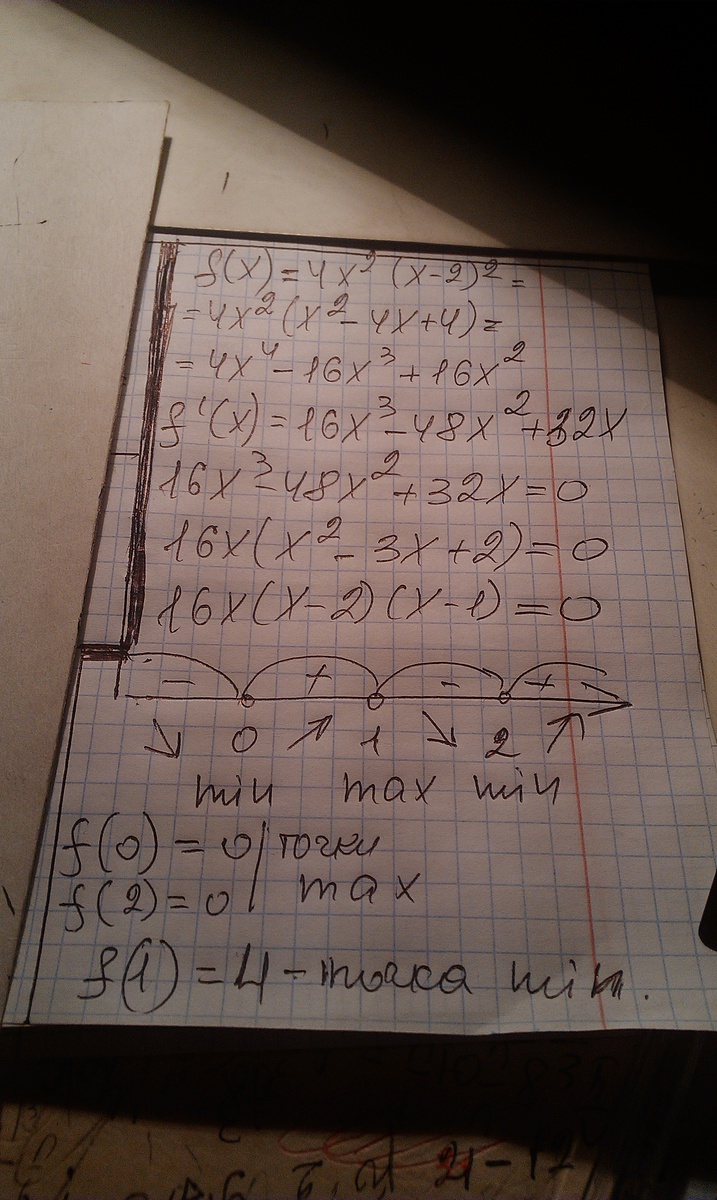 f(x) = 4x² (x-2)² =
= 4x² (x² - 4x + 4) =
= 4x⁴ - 16x³ + 16x²
f'(x) = 16x³ - 48x² + 32x
16x³ - 48x² + 32x = 0
16x(x² - 3x + 2) = 0
16x(x-2)(x-1) = 0
- + - +
↘ 0 ↗ 1 ↘ 2 ↗
min max min
f(0) = 0 | точки
f(2) = 0 | max
f(1) = 4 - точка min.
21-17